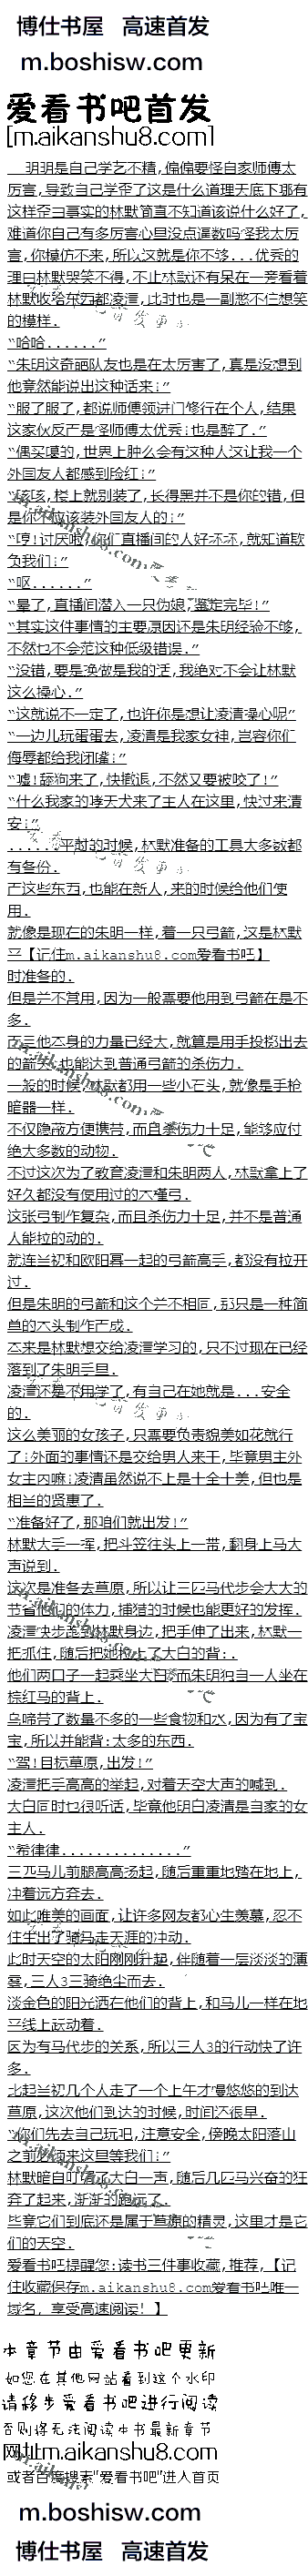 博仕书屋 高速首发
m.boshisw.com
爱看书吧首发
[m.aikanshu8.com]
明明是自己学艺不精,偏偏要怪自家师傅太
厉害,导致自己学歪了这是什么道理天底下哪有
这样歪曲事实的林默简直不知道该说什么好了,
难道你自己有多厉害心里没点逼数吗怪我太厉
害,你模仿不来,所以这就是你不够...优秀的
理由林默哭笑不得,不止林默还有呆在一旁看着
林默收拾东西都凌清,此时也是一副憋不住想笑
的模样.
“哈哈......”
“朱明这奇葩队友也是在太厉害了,真是没想到
他竟然能说出这种话来!”
“服了服了,都说师傅领进门修行在个人,结果
这家伙反而是怪师傅太优秀!也是醉了.”
“偶买噶的,世界上肿么会有这种人这让我一个
外国友人都感到脸红!”
“咳咳,楼上就别装了,长得黑并不是你的错,但
是你不应该装外国友人的!”
“哼!讨厌啦,你们直播间的人好坏坏,就知道欺
负我们!”
“呕......”
“晕了,直播间潜入一只伪娘,鉴定完毕!”
“其实这件事情的主要原因还是朱明经验不够,
不然也不会范这种低级错误.”
“没错,要是换做是我的话,我绝对不会让林默
这么操心.”
“这就说不一定了,也许你是想让凌清操心呢”
“一边儿玩蛋蛋去,凌清是我家女神,岂容你们
侮辱都给我闭嘴!”
“嘘!舔狗来了,快撤退,不然又要被咬了!”
“什么我家的哮天犬来了主人在这里,快过来请
安!”
......平时的时候,林默准备的工具大多数都
有备份.
而这些东西,也能在新人,来的时候给他们使
用.
就像是现在的朱明一样,着一只弓箭,这是林默
平【记住m.aikanshu8.com爱看书吧】
时准备的.
但是并不常用,因为一般需要他用到弓箭在是不
多.
而三他本身的力量已经大,就算是用手投掷出去
的箭矢,也能达到普通弓箭的杀伤力.
一般的时候,林默都用一些小石头,就像是手枪
暗器一样.
不仅隐蔽方便携带,而且杀伤力十足,能够应付
绝大多数的动物.
不过这次为了教育凌清和朱明两人,林默拿上了
好久都没有使用过的木槿弓.
这张弓制作复杂,而且杀伤力十足,并不是普通
人能拉的动的.
就连兰初和欧阳冥一起的弓箭高手,都没有拉开
过.
但是朱明的弓箭和这个并不相同,那只是一种简
单的木头制作而成.
本来是林默想交给凌清学习的,只不过现在已经
落到了朱明手里.
凌清还是不用学了,有自己在她就是...安全
的.
这么美丽的女孩子,只需要负责貌美如花就行
了!外面的事情还是交给男人来干,毕竟男主外
女主内嘛!凌清虽然说不上是十全十美,但也是
相当的贤惠了.
“准备好了,那咱们就出发!”
林默大手一挥,把斗笠往头上一带,翻身上马大
声说到.
这次是准备去草原,所以让三匹马代步会大大的
节省他们的体力,捕猎的时候也能更好的发挥.
凌清快步走到林默身边,把手伸了出来,林默一
把抓住,随后把她拉上了大白的背!.
他们两口子一起乘坐大白,而朱明独自一人坐在
棕红马的背上.
乌啼带了数量不多的一些食物和水,因为有了宝
宝,所以并能背!太多的东西.
“驾!目标草原,出发!”
凌清把手高高的举起,对着天空大声的喊到.
大白同时也很听话,毕竟他明白凌清是当家的女
主人.
“希律律..............”
三匹马儿前腿高高扬起,随后重重地踏在地上,
冲着远方奔去.
如此唯美的画面,让许多网友都心生羡慕,忍不
住生出了骑马走天涯的冲动.
此时天空的太阳刚刚升起,伴随着一层淡淡的薄
雾,三人3三骑绝尘而去.
淡金色的阳光洒在他们的背上,和马儿一样在地
平线上跃动着.
因为有马代步的关系,所以三人3的行动快了许
多.
比起兰初几个人走了一个上午才慢悠悠的到达
草原,这次他们到达的时候,时间还很早.
“你们先去自己玩吧,注意安全,傍晚太阳落山
之前必须来这里等我们!”
林默暗自叮嘱了大白一声,随后几匹马兴奋的狂
奔了起来,渐渐的跑远了.
毕竟它们到底还是属于草原的精灵,这里才是它
们的天空.
爱看书吧提醒您:读书三件事收藏,推荐,【记
住收藏保存m.aikanshu8.com爱看书吧唯一
域名,享受高速阅读!】
本章节由爱看书吧更新
如您在其他网站看到这个水印
请移步爱看书吧进行阅读
否则将无法阅读本书最新章节
网址m.aikanshu8.com
或者百度搜索"爱看书吧"进入首页
m.boshisw.com
博仕书屋 高速首发